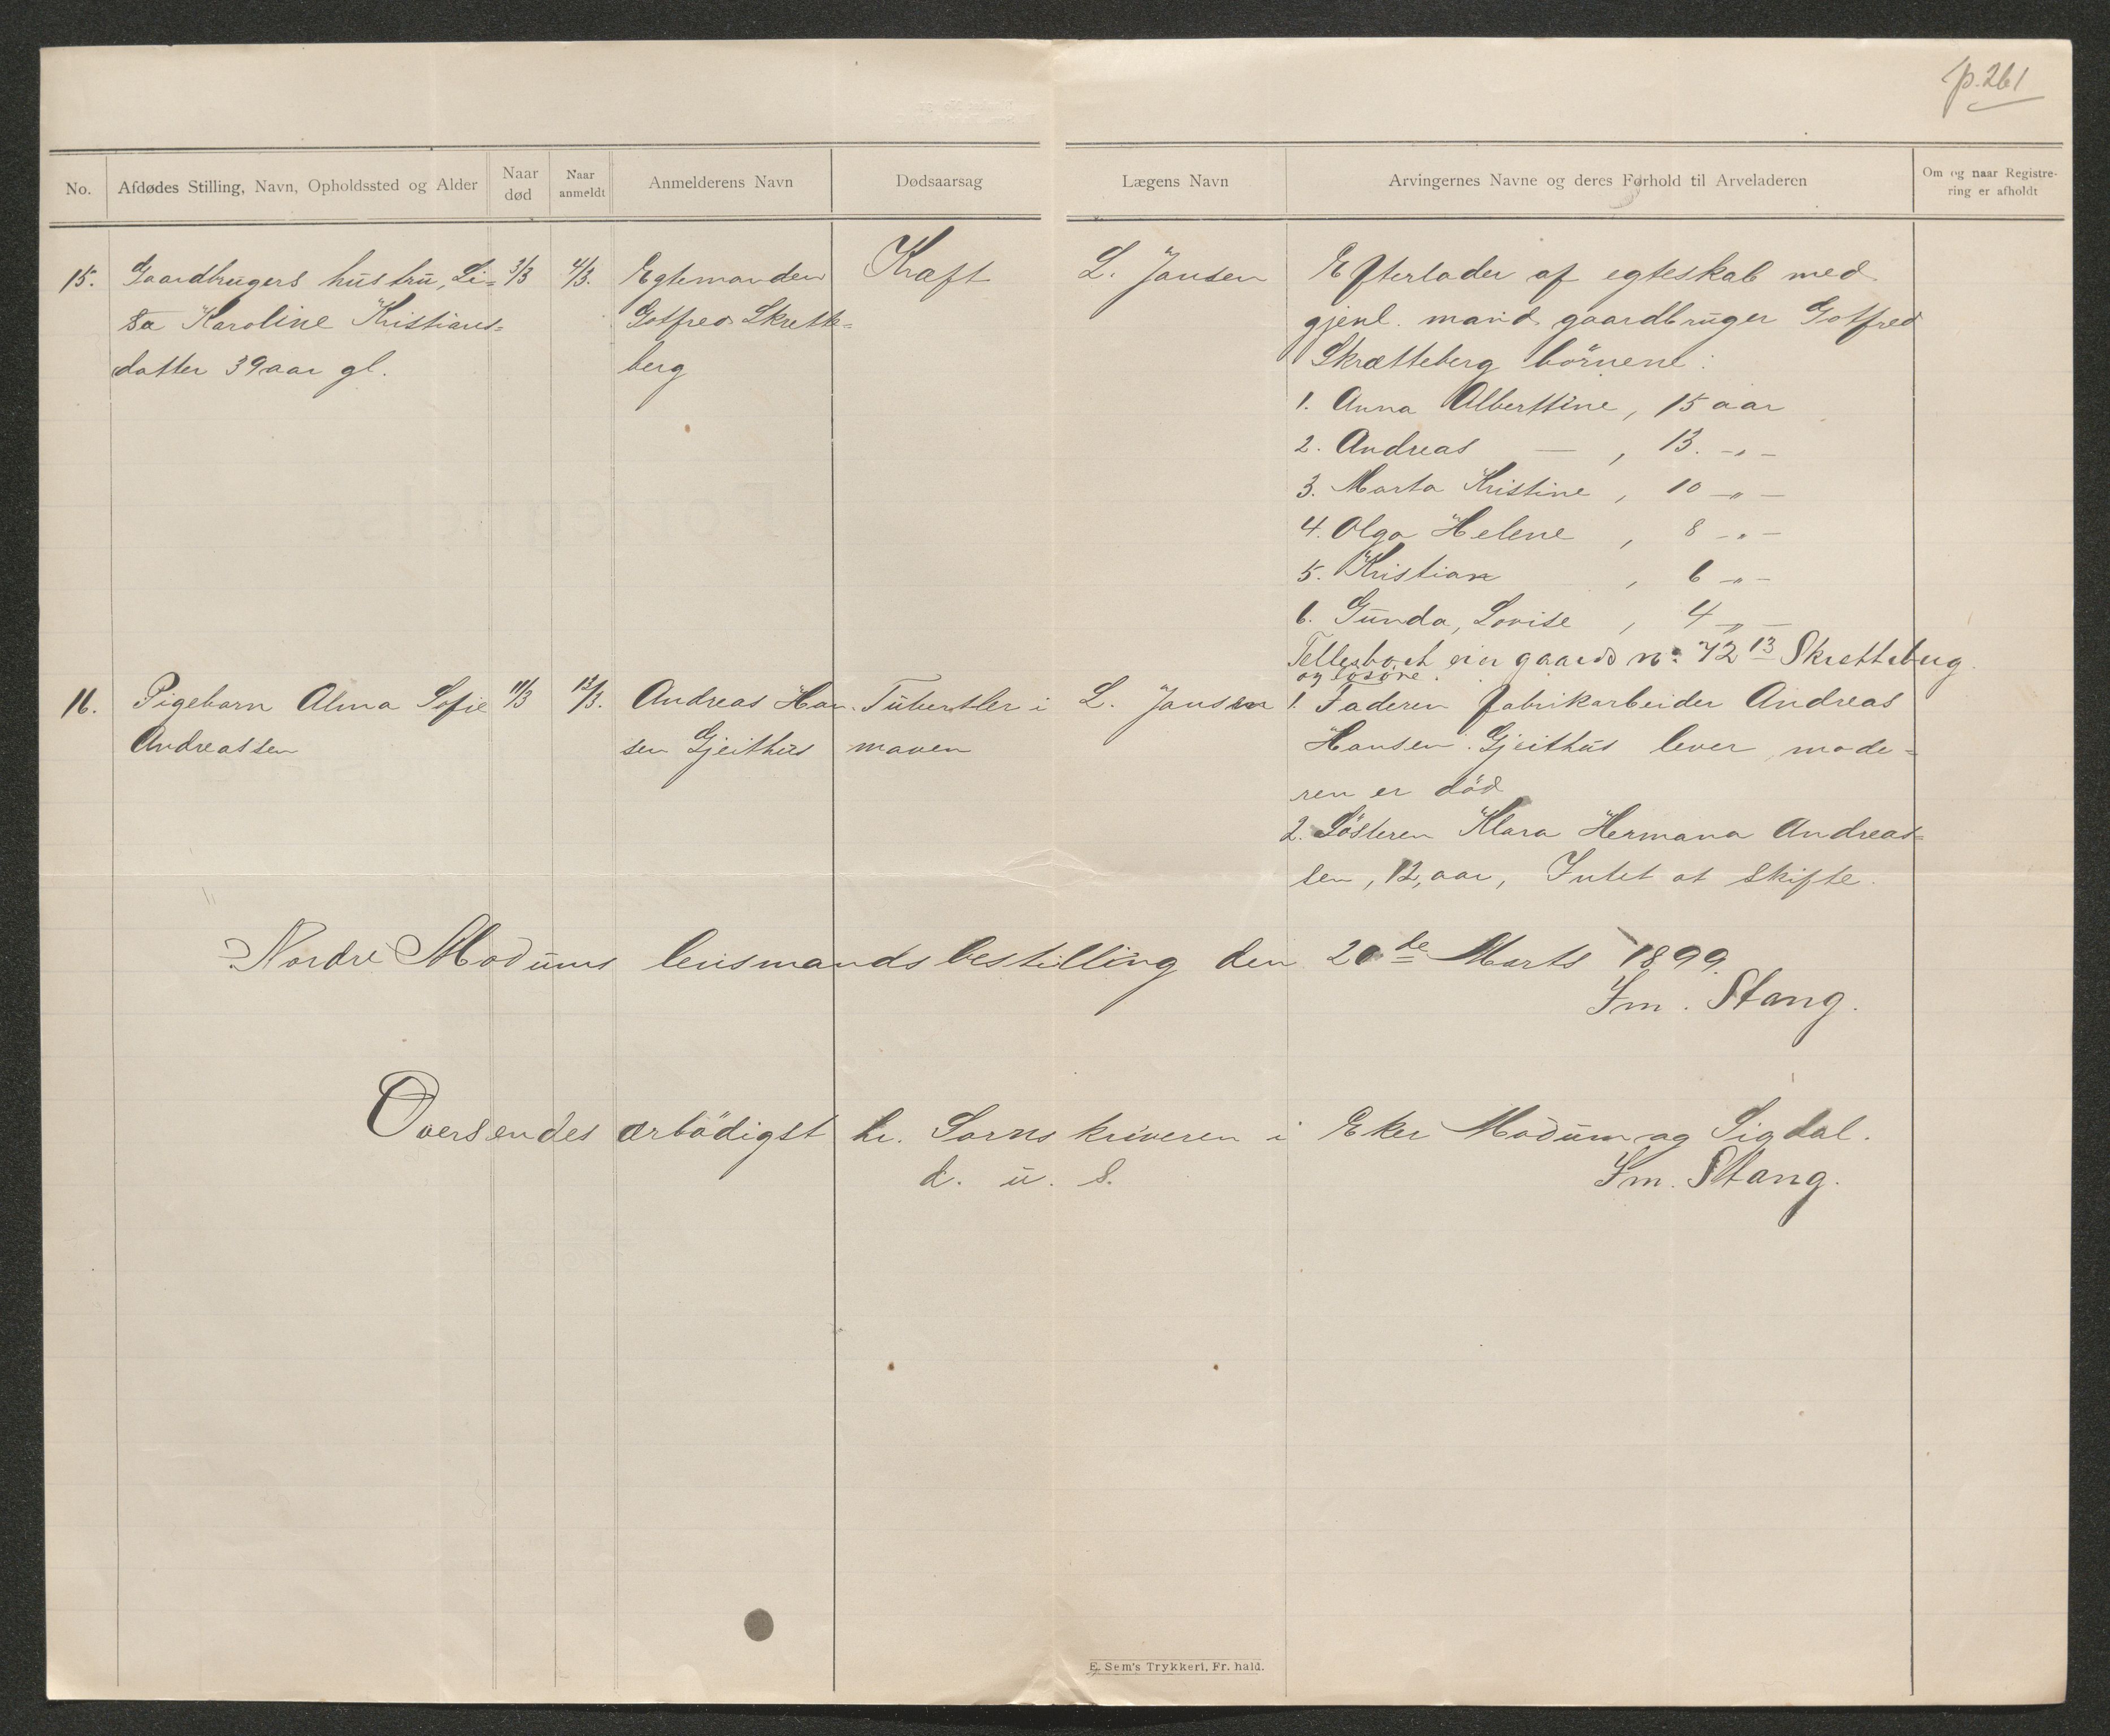 p. 261
No.
Afdødes Stilling, Navn, Opholdssted og Alder
Naar død
Naar anmeldt
Anmelderens Navn
Dødsaarsag
Lægens Navn
Arvingernes Navne og deres Forhold til Arveladeren
Om og naar Registrering er afholdt
15.
Gaardbrugers hustru, Li=
sa Karoline Kristians=
datter 39 aar gl.
3/3
4/3.
Egtemanden
Gotfred Skrette=
berg
Kræft
L. Jansen
Efterlader af egteskab med
gjenl. mand gaardbruger Gotfred
Skrætteberg børnene:
1. Anna Alberttine, 15 aar
2. Andreas — , 13. -„-
3. Marta Kristine, 10 -„-
4. Olga Helene, 8 -„-
5. Kristian, 6 -„-
6. Gunda, Lovise, 4 -„-
Fellesboet eier gaards no. 72 13 Skretteberg
og løsøre.
16.
Pigebarn Alma Sofie
Andreassen
11/3
13/3.
Andreas Han
sen Gjeithus
Tuberkler i
maven
L. Jansen
1. Faderen fabrikarbeider Andreas
Hansen Gjeithus lever, mode=
ren er død
2. Søsteren Klara Hermana Andreas=
sen, 12, aar, Intet at skifte.
Nordre Modums lensmandsbestilling den 20de Marts 1899.
Im. Stang.
Oversendes ærbødigst hr. Sorenskriveren i Eker Modum og Sigdal.
d. u. s.
Im. Stang.
E. Sem's Trykkeri, Fr. hald.